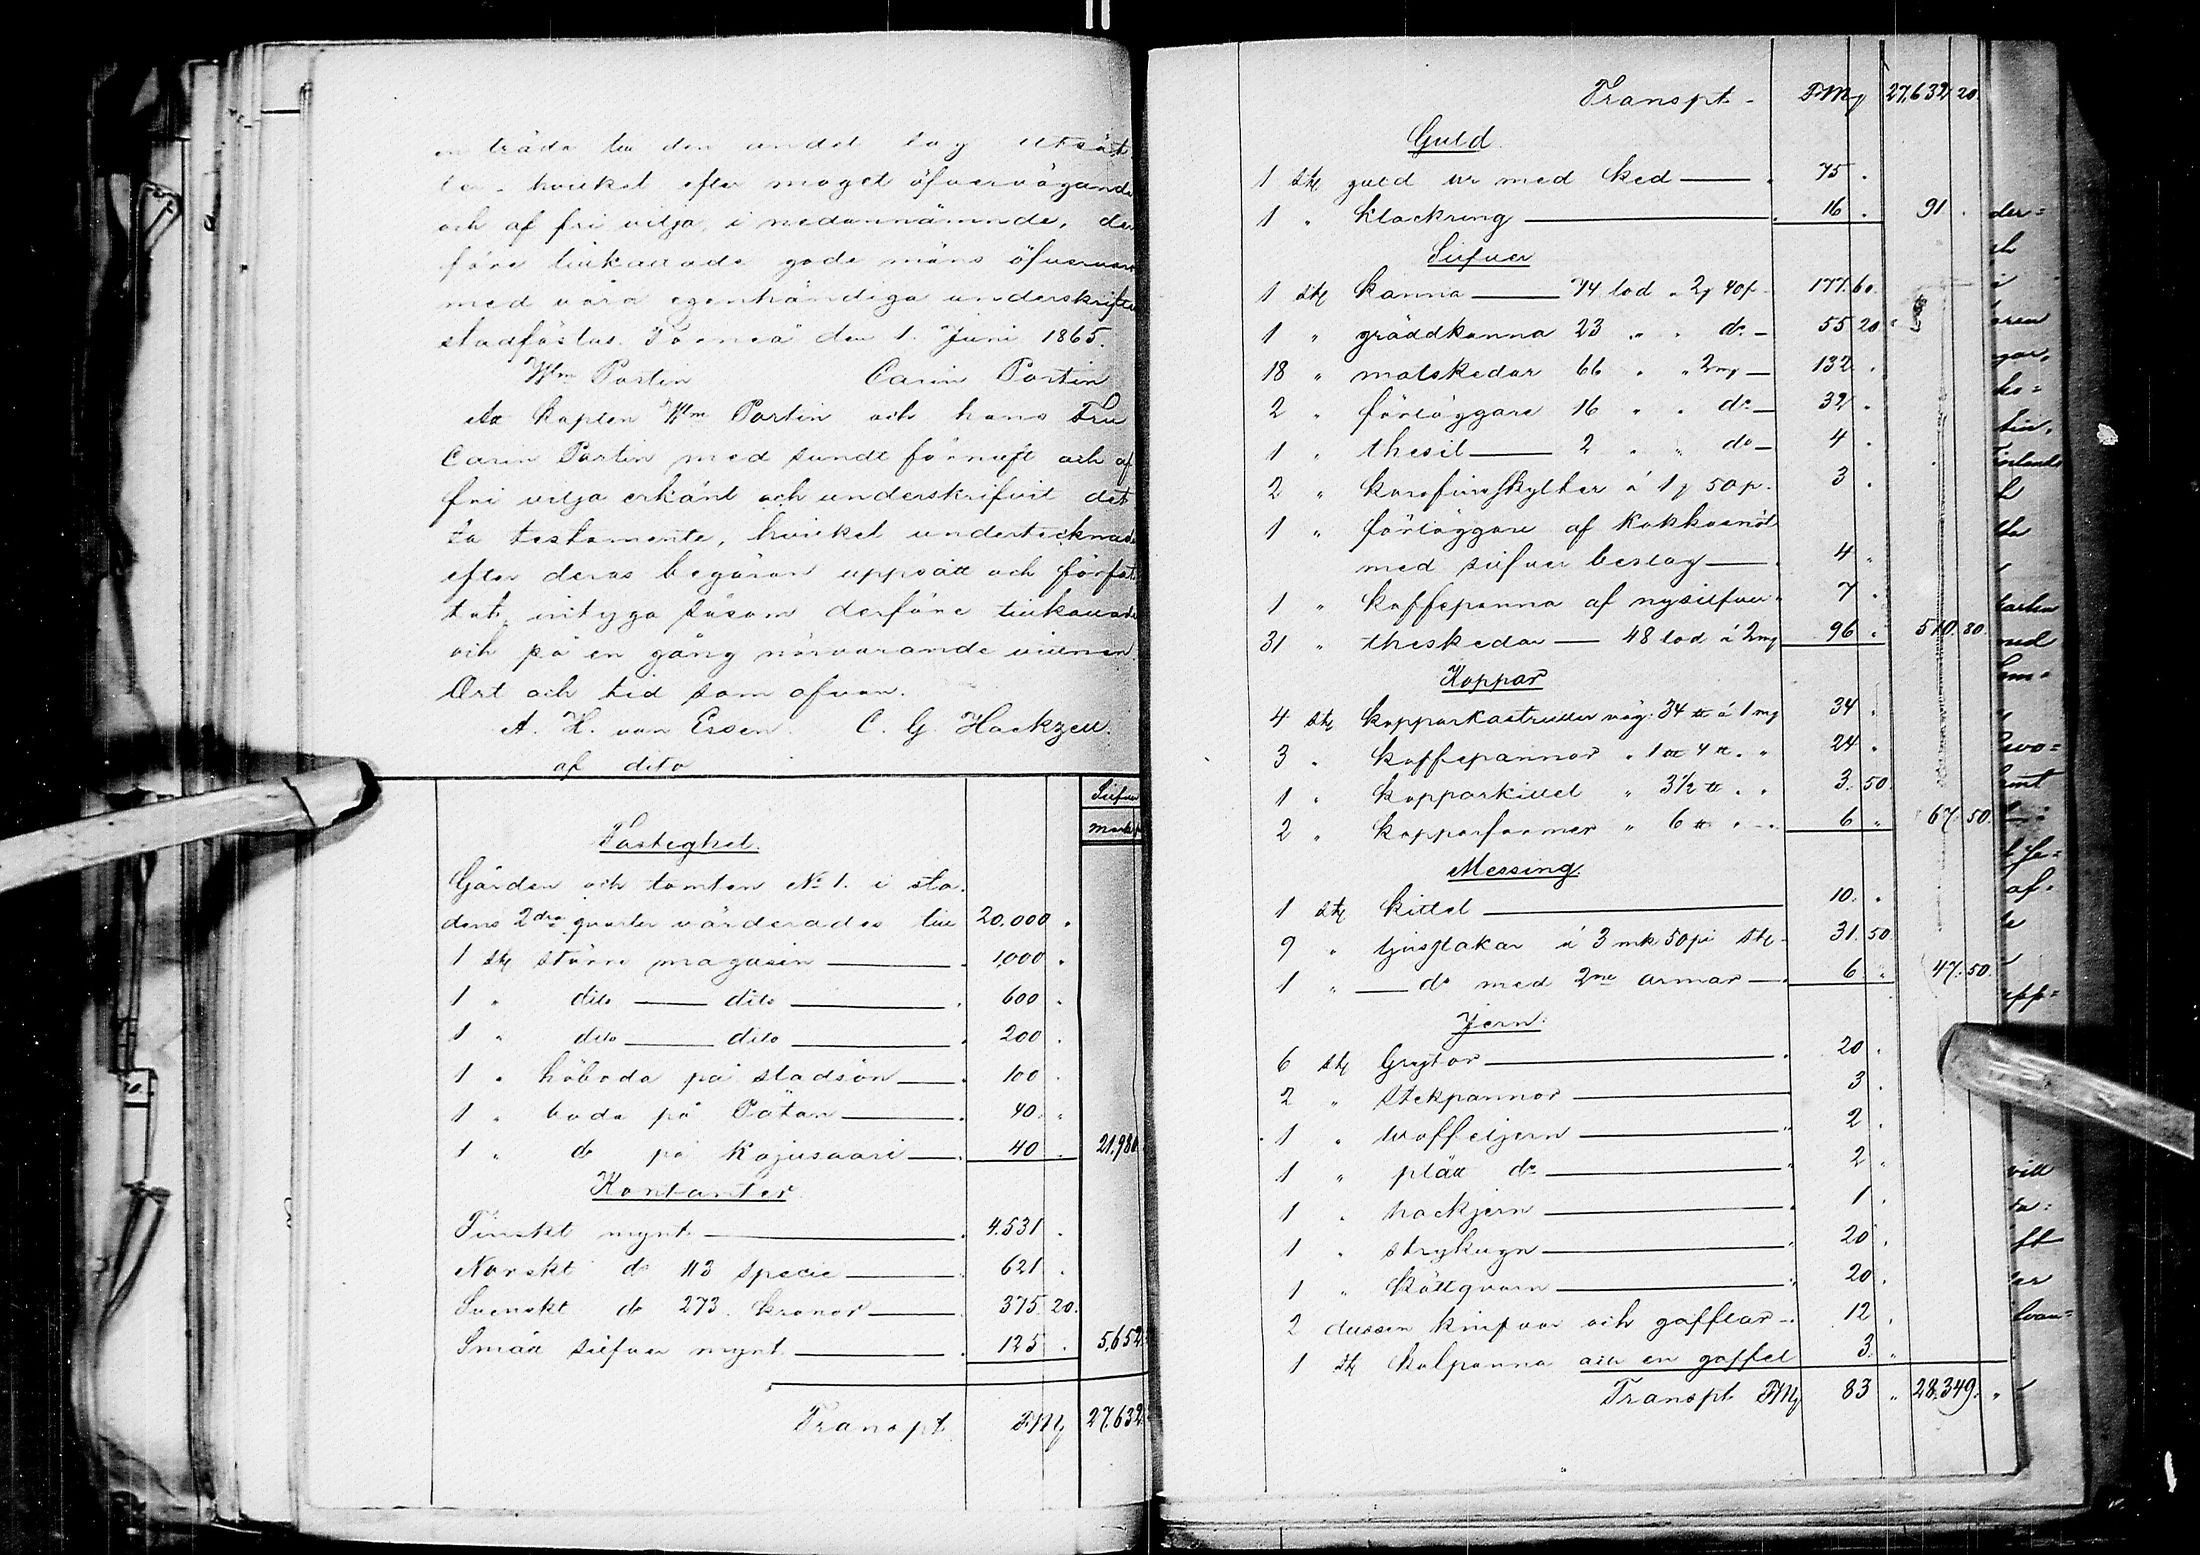 träda till den andel lag utsät-
ter, hvilket efter moget öfvervägande
och af fri vilja, i nedannämnde, der
före tillkallade gode mäns öfvervaro
med våra egenhändiga underskrifter
stadfästas. Torneå den 1. Juni 1865.
Wlm Portin Carin Portin
Att Kapten Wlm Portin och hans Fru
Carin Portin med sundt förnuft och af
fri vilja erkänt och underskrifvit det
ta testamente, hvilket undertecknade
efter deras begäran uppsatt och förfat
tat, intyga såsom derföre tillkallade
och på en gång närvarande vittnen.
Ort och tid som ofvan.
A. H. von Essen. C. G. Hackzell.
af dito
Silfver
Mark p
Fastighet.
Gården och tomten No 1. i sta-
dens 2dra qvarter värderades till 20,000 "
1 st större magasin 1,000 "
1 " dito dito 600 "
1 " dito dito 200 "
1 " höboda på stadsön 100 "
1 " boda på Pätan 40 "
1 " do på Kojusaari 40 " 21,980
Kontanter
Finskt mynt 4,531 "
Norskt do 113 specie 621 "
Svenskt do 273 kronor 375 20
Smått silfver mynt 125 " 5,652
Transpt FMg 27,632
Transpt FMg 27,632 20
Guld
1 st guld ur med ked 75 "
1 " klackring 16 " 91 "
Silfver
1 st kanna 74 lod " 2 40p 177 60
1 " gräddkanna 23 " " do 55 20
18 " matskedar 66 " " 2 mg 132 "
2 " förläggare 16 " " do 32 "
1 " thesil 2 " " do 4 "
2 " karafinsskyltar á 1 50p. 3 "
1 " förläggare af Kokkosnöt
med silfver beslag 4 "
1 " kaffepanna af nysilfver 7 "
31 " theskedar 48 lod á 2 mg 96 " 510 80
Koppar
4 st kopparkastruller väg. 34 ℔ á 1 mg 34 "
3 " kaffepannor " 1 4 ℔ " " 24 "
1 " kopparkittel " 3 1/2 ℔ " " 3 50
2 " kopparformar " 6 ℔ " " 6 " 67 50
Messing
1 st kittel 10 "
9 " ljusstakar á 3 mk 50 pi st 31 50
1 " do med 2ne armar 6 " 47 50
Jern
6 st Grytor 20 "
2 " stekpannor 3 "
1 " woffeljern 2 "
1 " plått do 2 "
1 " hackjern 1 "
1 " strykugn 20 "
1 " köttqvarn 20 "
2 dussin knifvar och gafflar 12 "
1 st kolpanna och en gaffel 3 "
Transpt FMg 83 " 28,349 "